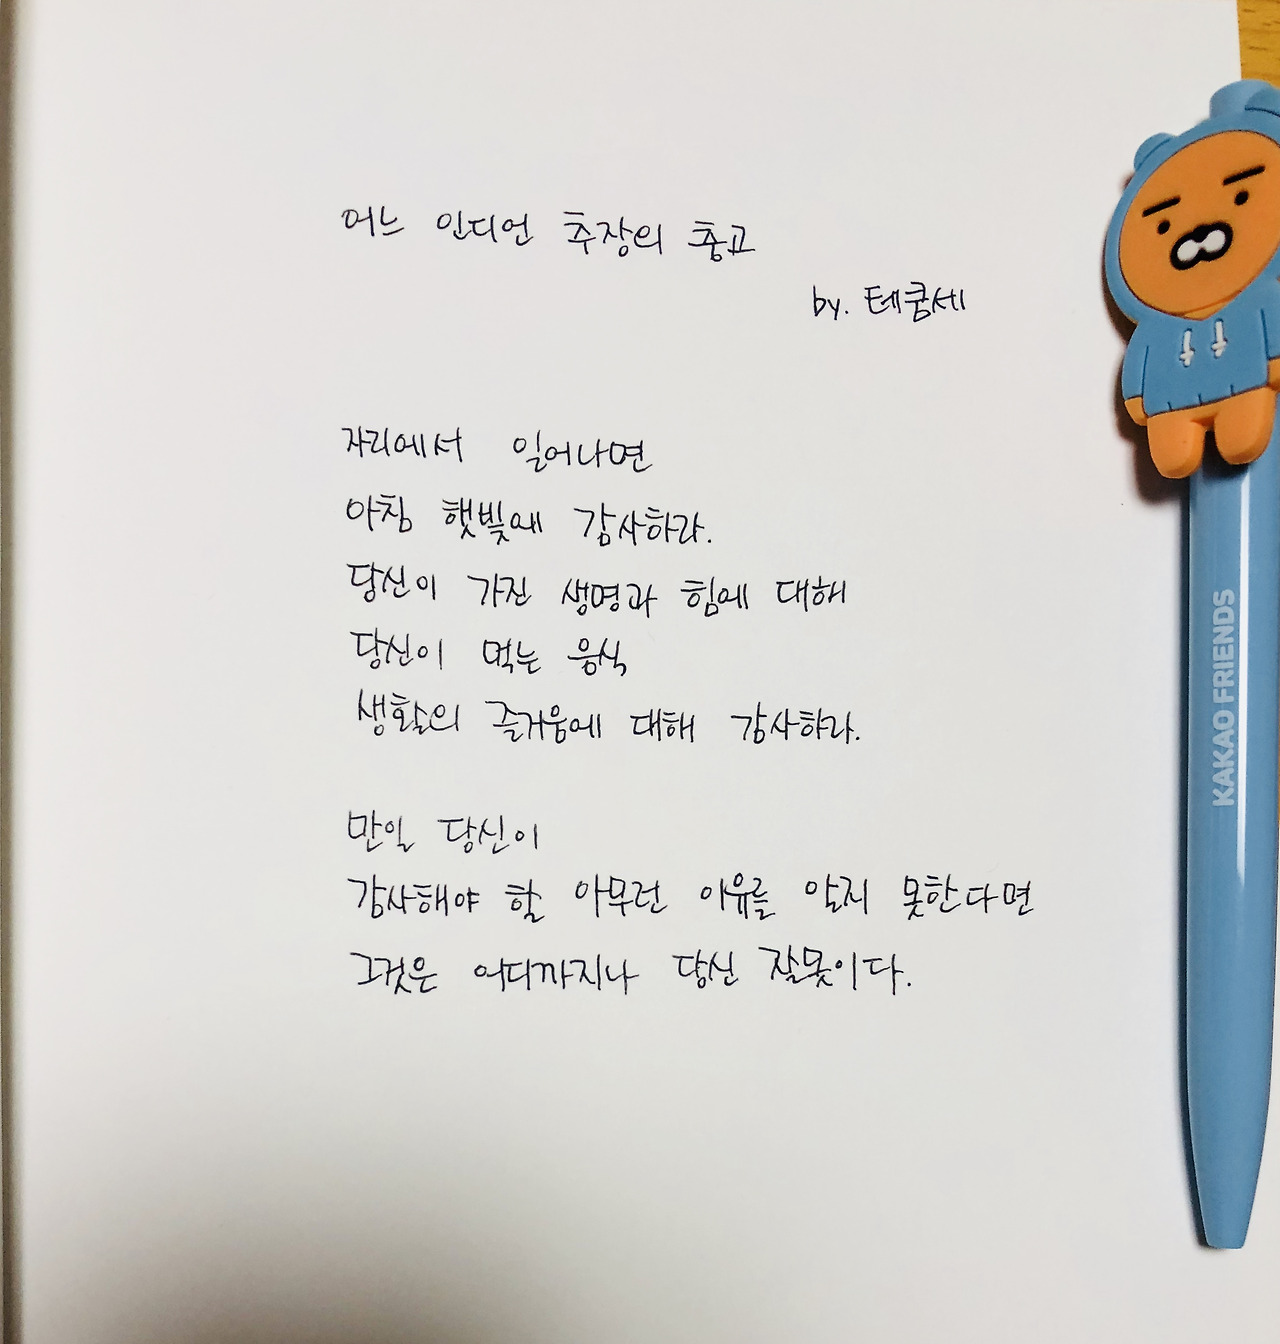 어느 인디언 추장의 충고
by. 테쿰세
자리에서 일어나면
아침 햇빛에 감사하라.
당신이 가진 생명과 힘에 대해
당신이 먹는 음식
생활의 즐거움에 대해 감사하라.
만일 당신이
감사해야 할 아무런 이유를 알지 못한다면
그것은 어디까지나 당신 잘못이다.
KAKAO FRIENDS